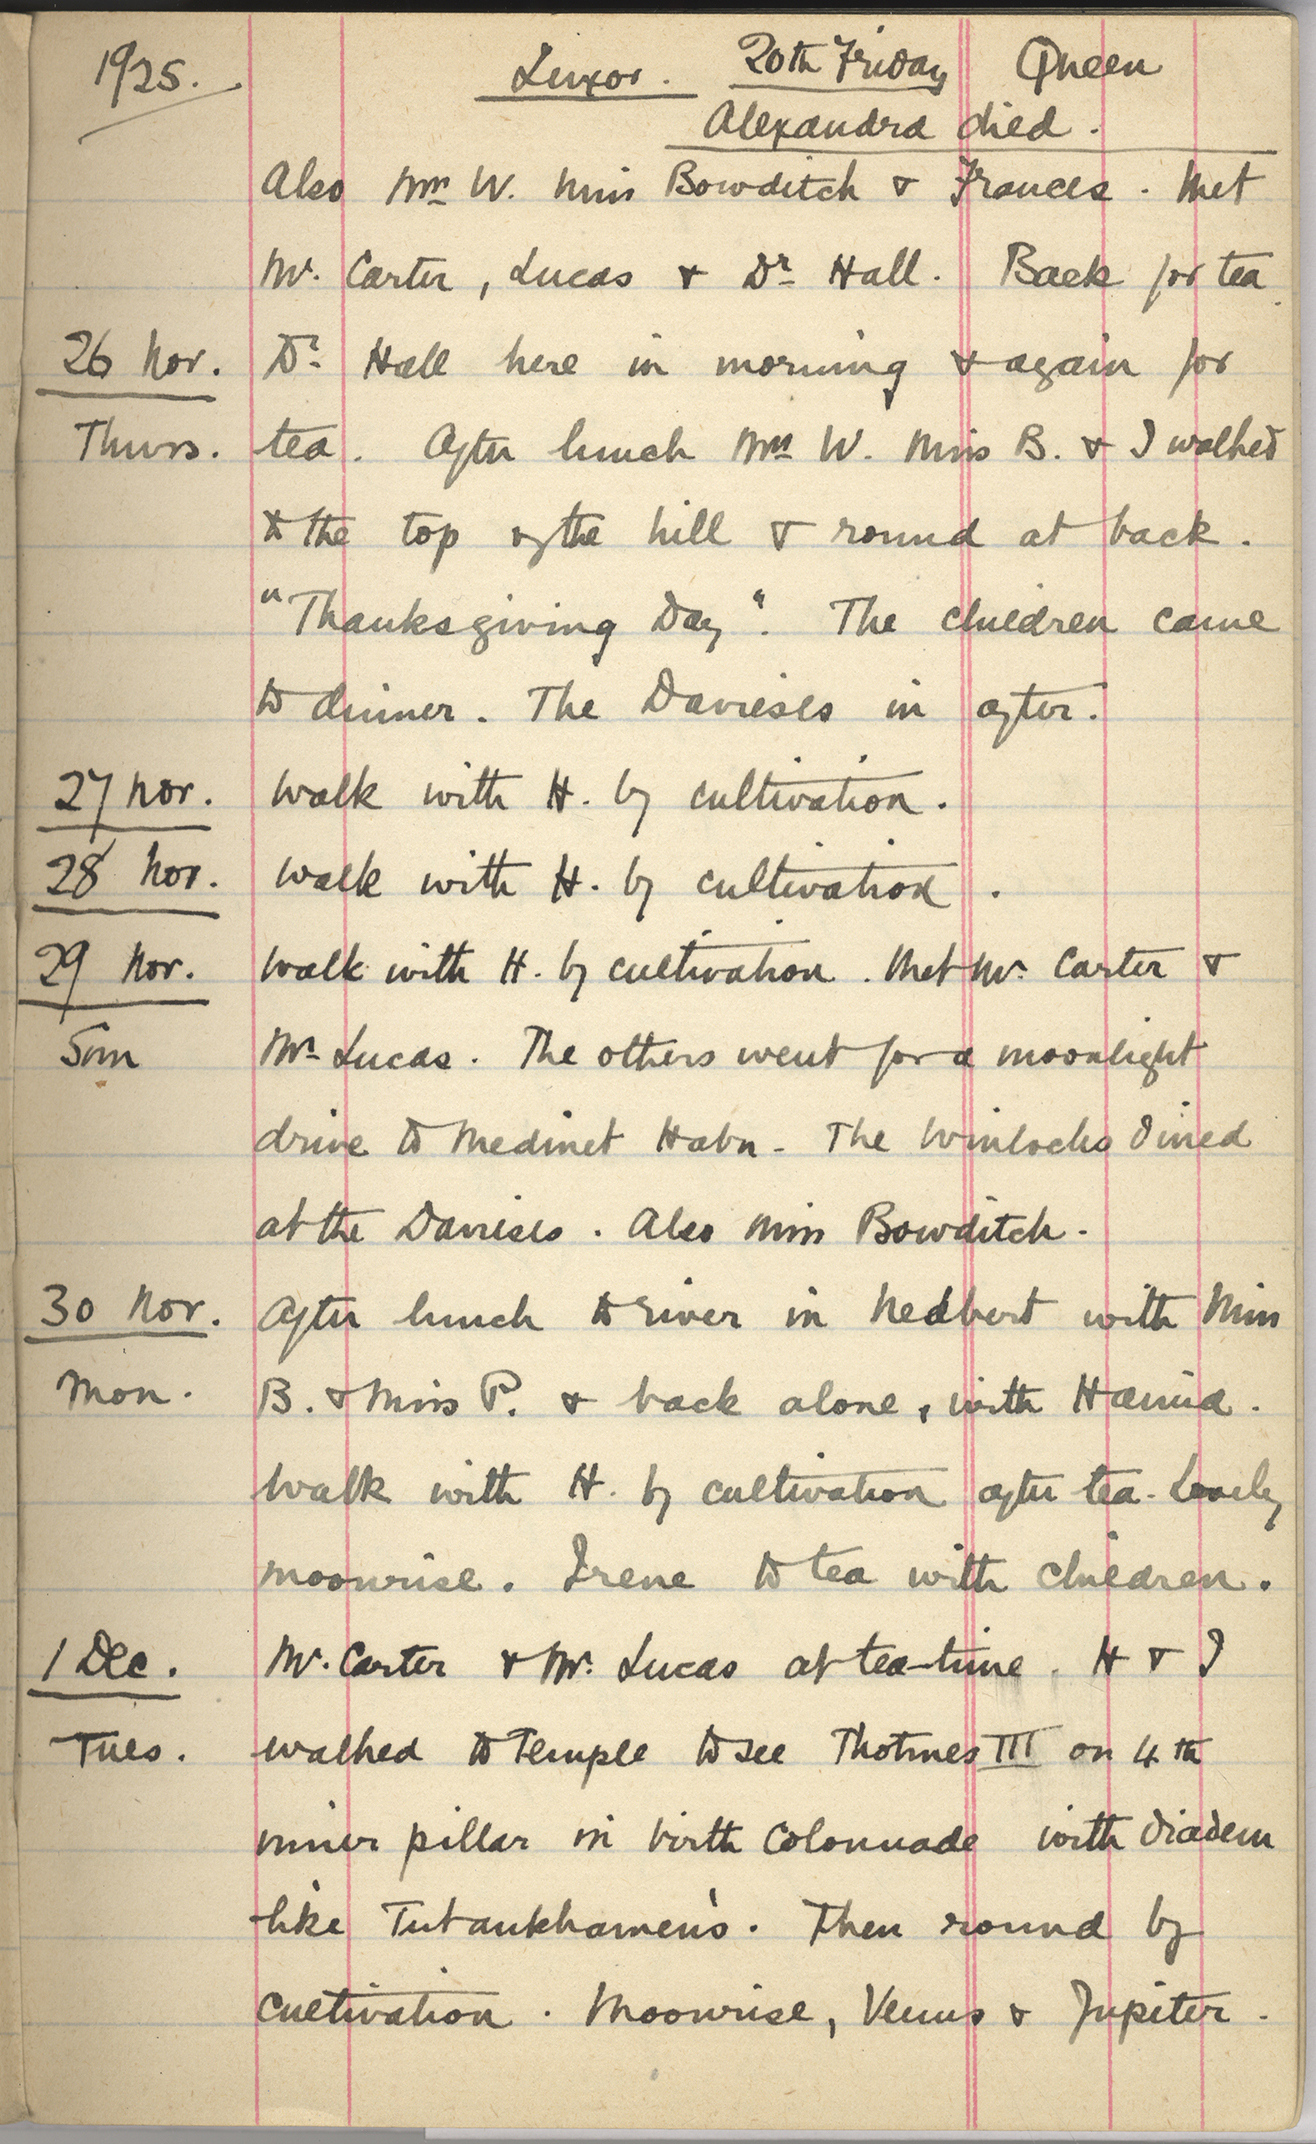 1925. Luxor. 20th Friday Queen
Alexandra died.
Also Mrs W. Miss Bowditch & Frances. Met
Mr. Carter, Lucas & Dr Hall. Back for tea.
26 Nov. Dr Hall here in morning & again for
Thurs. tea. After lunch Mrs W. Miss B. & I walked
to the top of the hill & round at back.
"Thanksgiving Day". The children came
to dinner. The Davieses in after.
27 Nov. Walk with H. by cultivation.
28 Nov. Walk with H. by cultivation.
29 Nov. Walk with H. by cultivation. Met Mr. Carter &
Sun Mr Lucas. The others went for a moonlight
drive to Medinet Habu. The Winlocks dined
at the Davieses. Also Miss Bowditch.
30 Nov. After lunch to river in with Miss
Mon. B. & Miss P. & back alone, with Hamid.
Walk with H. by cultivation after tea. Lovely
moonrise. Irene to tea with children.
1 Dec. Mr. Carter & Mr. Lucas at tea-time. H & I
Tues. walked to Temple to see Thotmes III on 4th
inner pillar in birth colonnade with diadem
like Tutankhamen's. Then round by
cultivation. Moonrise, Venus & Jupiter.